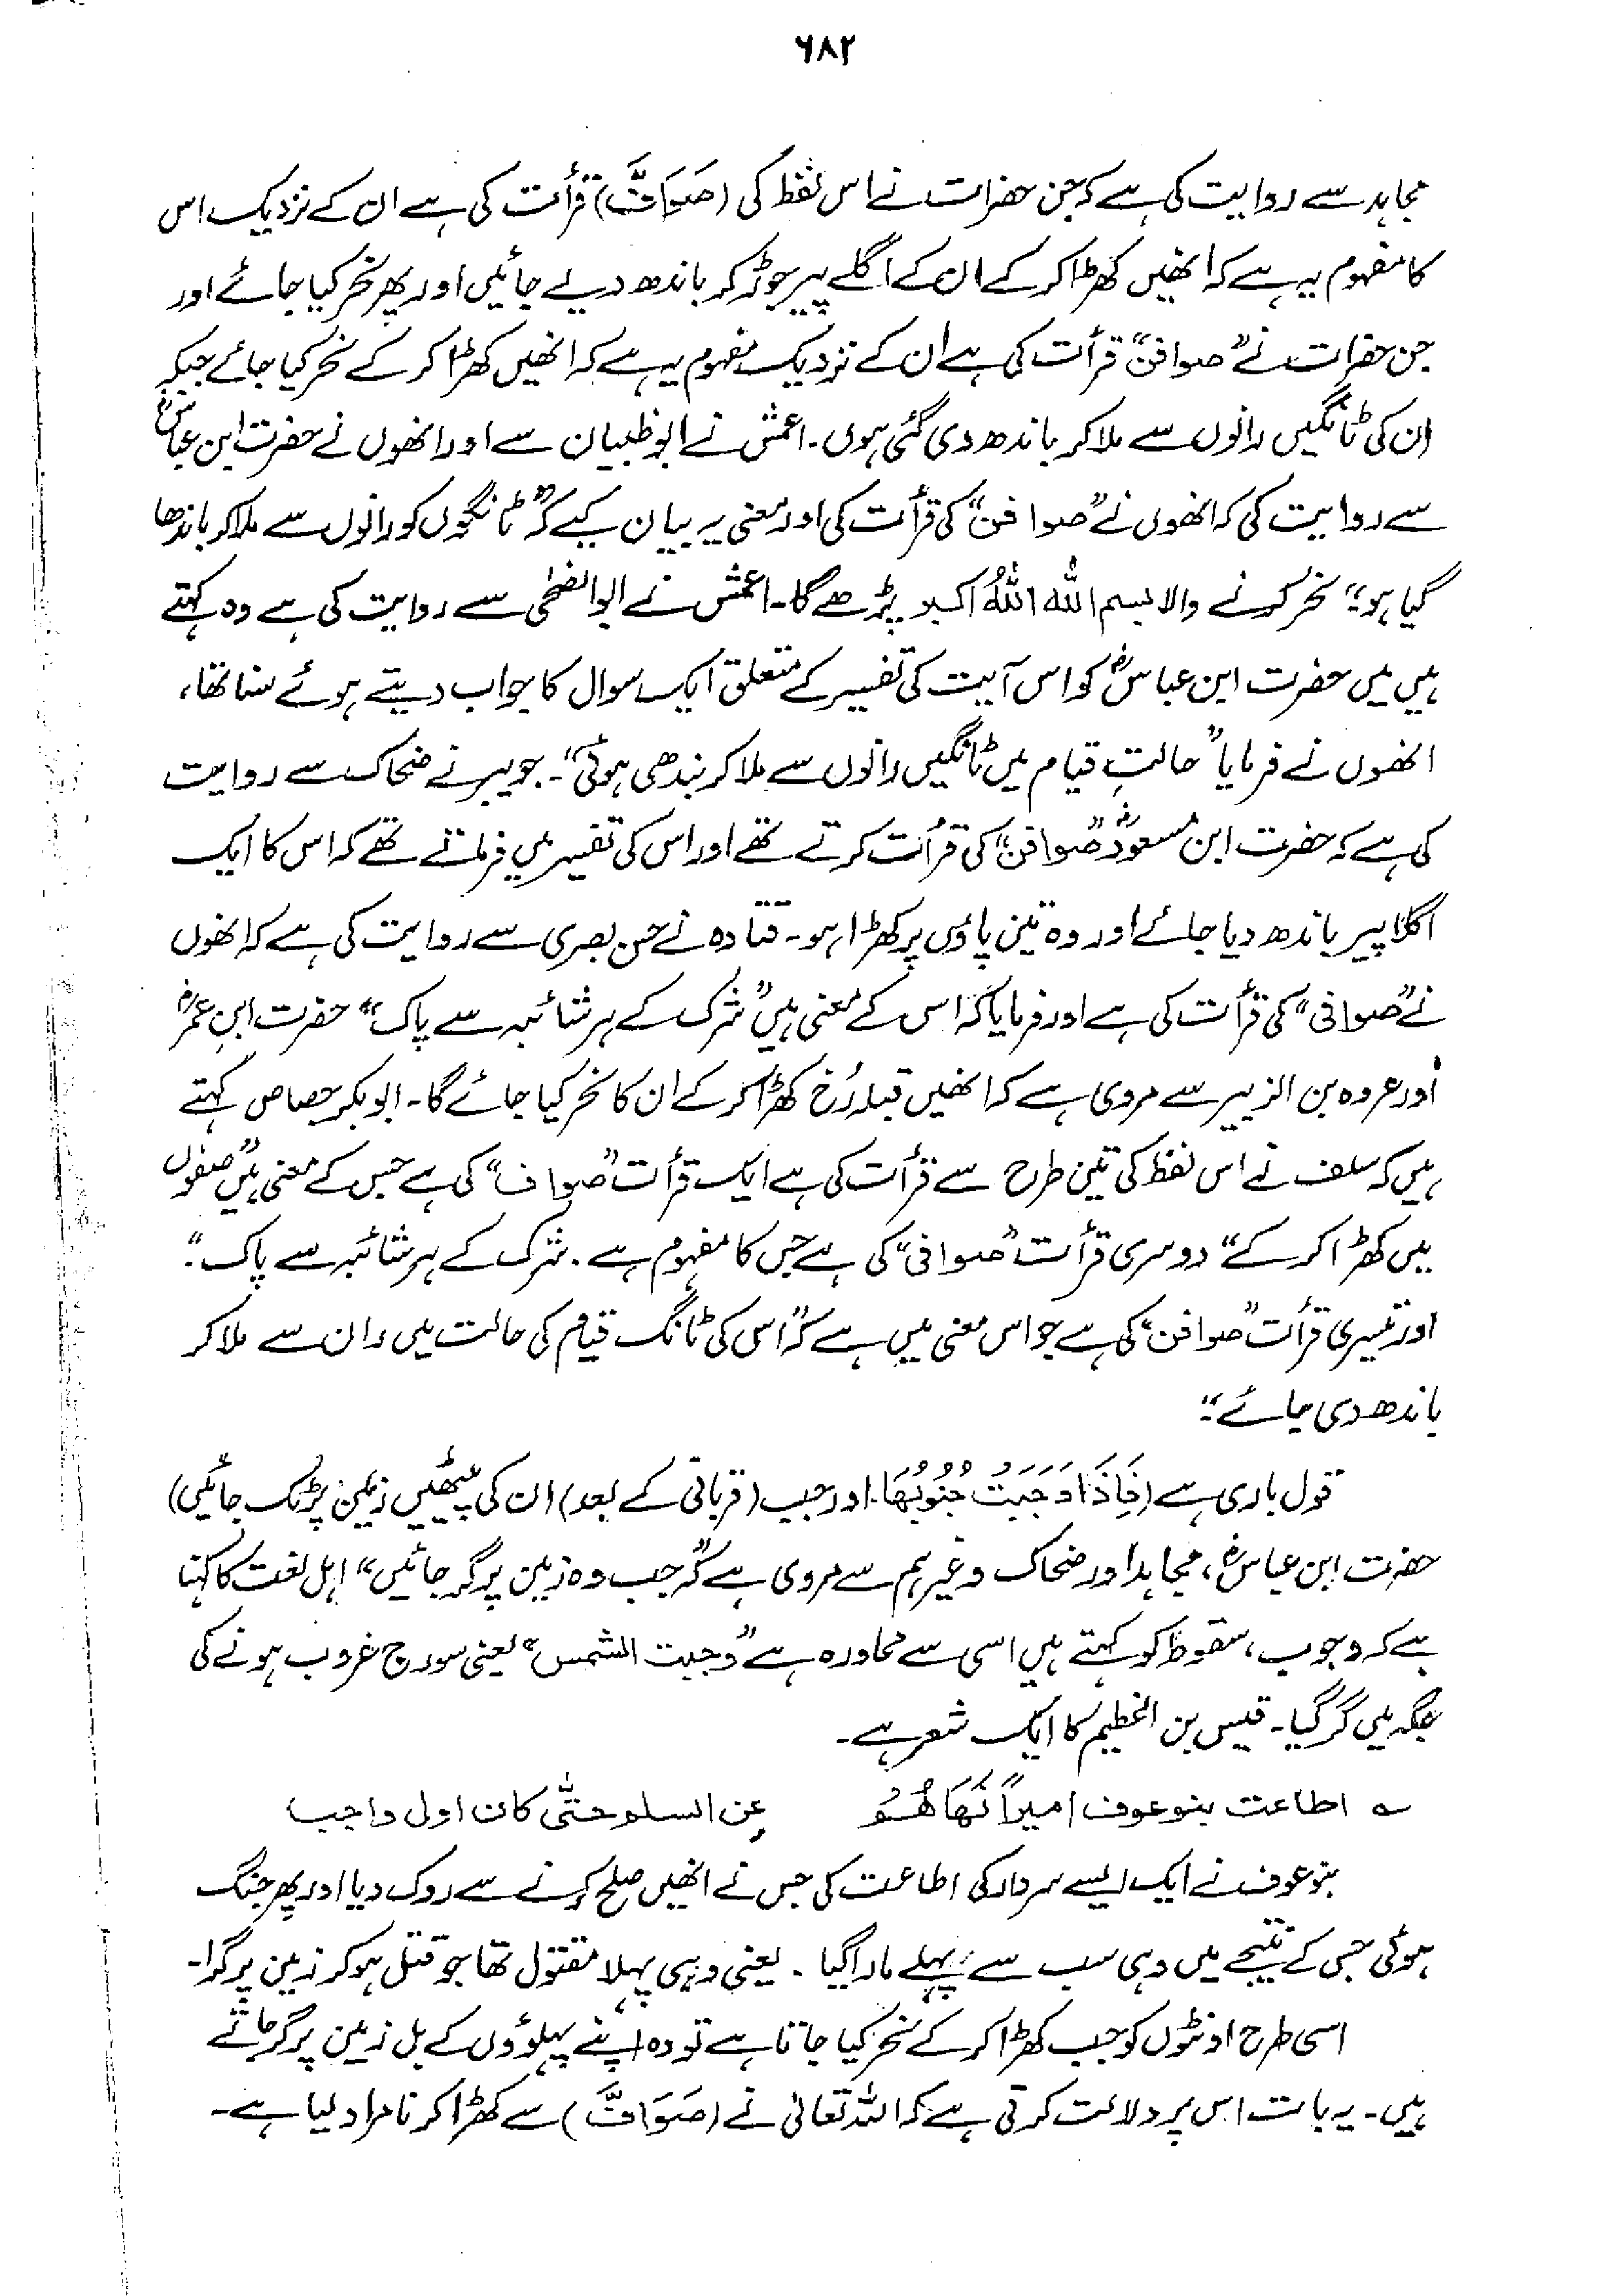 ۶۸۲
مجاہد سے روایت کی ہے کہ جن حضرات نے اس لفظ کی (صَوَافَّ) قرأت کی ہے ان کے نزدیک اس
کا مفہوم یہ ہے کہ انھیں کھڑا کر کے ان کے اگلے پیر جوڑ کر باندھ دیے جائیں اور پھر نحر کیا جائے اور
جن حضرات نے "صوافن" قرأت کی ہے ان کے نزدیک مفہوم یہ ہے کہ انھیں کھڑا کر کے نحر کیا جائے جبکہ
ان کی ٹانگیں رانوں سے ملا کر باندھ دی گئی ہوں۔ اعمش نے ابوظبیان سے اور انھوں نے حضرت ابن عباسؓ
سے روایت کی کہ انھوں نے "صوافن" کی قرأت کی اور معنی یہ بیان کیے کہ "ٹانگوں کو رانوں سے ملا کر باندھا
گیا ہو" نحر کرنے والا بسم اللہ اللہُ اکبر پڑھے گا۔ اعمش نے ابوالضحٰی سے روایت کی ہے وہ کہتے
ہیں میں حضرت ابن عباسؓ کو اس آیت کی تفسیر کے متعلق ایک سوال کا جواب دیتے ہوئے سنا تھا،
انھوں نے فرمایا "حالتِ قیام میں ٹانگیں رانوں سے ملا کر بندھی ہوئی"۔ جویبر نے ضحاک سے روایت
کی ہے کہ حضرت ابن مسعودؓ "صوافن" کی قرأت کرتے تھے اور اس کی تفسیر میں فرماتے تھے کہ اس کا ایک
اگلا پیر باندھ دیا جائے اور وہ تین پاؤں پر کھڑا ہو۔ قتادہ نے حسن بصری سے روایت کی ہے کہ انھوں
نے "صوافی" کی قرأت کی ہے اور فرمایا کہ اس کے معنی ہیں "شرک کے ہر شائبہ سے پاک" حضرت ابن عمرؓ
اور عروہ بن الزبیر سے مروی ہے کہ انھیں قبلہ رُخ کھڑا کر کے ان کا نحر کیا جائے گا۔ ابوبکر جصاص کہتے
ہیں کہ سلف نے اس لفظ کی تین طرح سے قرأت کی ہے ایک قرأت "صواف" کی ہے جس کے معنی ہیں "صفوں
میں کھڑا کر کے" دوسری قرأت "صوافی" کی ہے جس کا مفہوم ہے۔ شرک کے ہر شائبہ سے پاک"۔
اور تیسری قرأت "صوافن" کی ہے جو اس معنی میں ہے کہ "اس کی ٹانگ قیام کی حالت میں ران سے ملا کر
باندھ دی جائے"۔
قول باری ہے (فَاِذَا وَجَبَتْ جُنُوْبُهَا۔ اور جب (قربانی کے بعد) ان کی پیٹھیں زمین پر ٹک جائیں)
حضرت ابن عباسؓ، مجاہد اور ضحاک وغیرہم سے مروی ہے کہ "جب وہ زمین پر گر جائیں" اہل لغت کا کہنا
ہے کہ وجوب، سقوط کو کہتے ہیں اسی سے محاورہ ہے "وجبت الشمس" یعنی سورج غروب ہونے کی
جگہ میں گر گیا۔ قیس بن الخطیم کا ایک شعر ہے۔
؎ اطاعت بنو عوف امیرًا نَهَاهُمُ عن السلم حتّٰی کان اول واجب
بنو عوف نے ایک ایسے سردار کی اطاعت کی جس نے انھیں صلح کرنے سے روک دیا اور پھر جنگ
ہوئی جس کے نتیجے میں وہی سب سے پہلے مارا گیا۔ یعنی وہی پہلا مقتول تھا جو قتل ہو کر زمین پر گرا۔
اسی طرح اونٹوں کو جب کھڑا کر کے نحر کیا جاتا ہے تو وہ اپنے پہلوؤں کے بل زمین پر گر جاتے
ہیں۔ یہ بات اس پر دلالت کرتی ہے کہ اللہ تعالیٰ نے (صَوَافَّ) سے کھڑا کرنا مراد لیا ہے۔